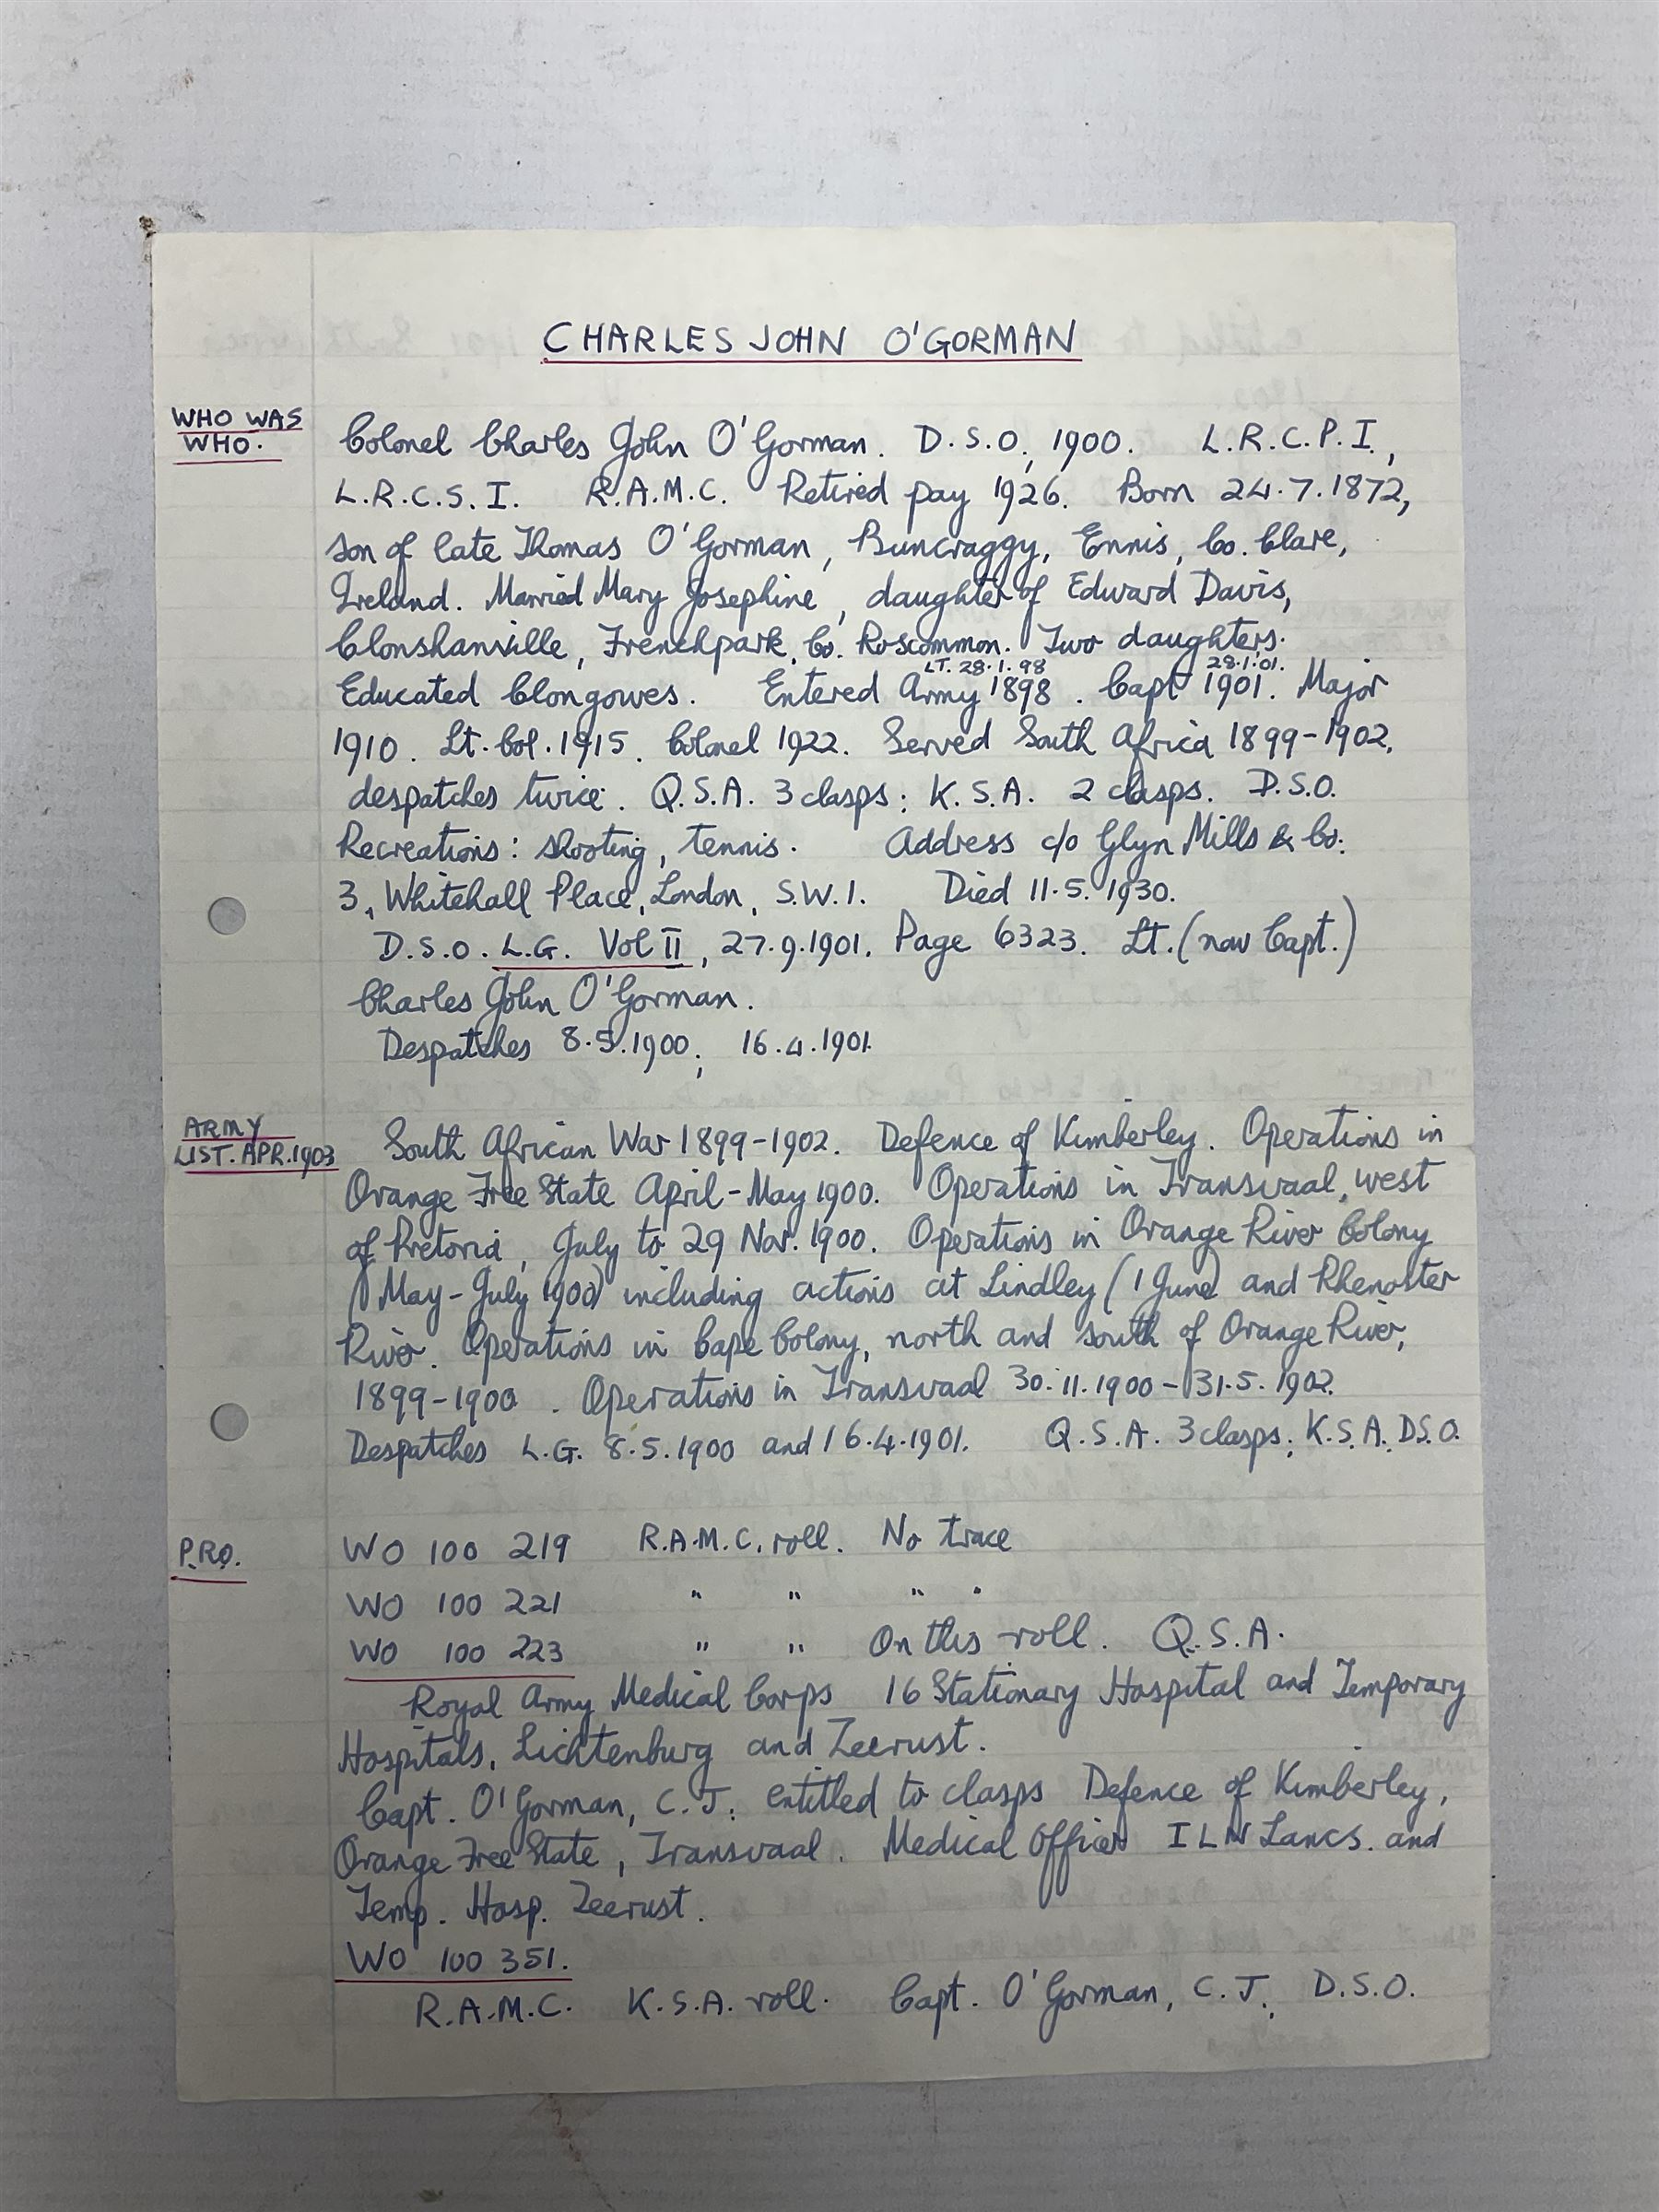 CHARLES JOHN O'GORMAN
WHO WAS
WHO.
Colonel Charles John O'Gorman. D.S.O, 1900. L.R.C.P.I.,
L.R.C.S.I. R.A.M.C. Retired pay 1926. Born 24.7.1872,
son of late Thomas O'Gorman, Buncraggy, Ennis, Co. Clare,
Ireland. Married Mary Josephine, daughter of Edward Davis,
Clonshanville, Frenchpark, Co. Roscommon. Two daughters.
LT. 28.1.98 28.1.01.
Educated Clongowes. Entered Army 1898. Capt 1901. Major
1910. Lt. Col. 1915. Colonel 1922. Served South Africa 1899-1902,
despatches twice. Q.S.A. 3 clasps; K.S.A. 2 clasps. D.S.O.
Recreations: shooting, tennis. Address c/o Glyn Mills & Co.
3, Whitehall Place, London, S.W.1. Died 11.5.1930.
D.S.O. L.G. Vol II, 27.9.1901. Page 6323. Lt. (now Capt.)
Charles John O'Gorman.
Despatches 8.5.1900; 16.4.1901
ARMY
LIST. APR. 1903
South African War 1899-1902. Defence of Kimberley. Operations in
Orange Free State April-May 1900. Operations in Transvaal, west
of Pretoria, July to 29 Nov. 1900. Operations in Orange River Colony
(May-July 1900) including actions at Lindley (1 June) and Rhenoster
River. Operations in Cape Colony, north and south of Orange River,
1899-1900. Operations in Transvaal 30.11.1900-31.5.1902.
Despatches L.G. 8.5.1900 and 16.4.1901. Q.S.A. 3 clasps; K.S.A. D.S.O.
P.R.O.
WO 100 219 R.A.M.C. roll. No trace
WO 100 221 " " " "
WO 100 223 " " On this roll. Q.S.A.
Royal Army Medical Corps 16 Stationary Hospital and Temporary
Hospitals, Lichtenburg and Zeerust.
Capt. O'Gorman, C.J. entitled to clasps Defence of Kimberley,
Orange Free State, Transvaal. Medical Officer I L N Lancs. and
Temp. Hosp. Zeerust.
WO 100 351.
R.A.M.C. K.S.A. roll. Capt. O'Gorman, C.J., D.S.O.